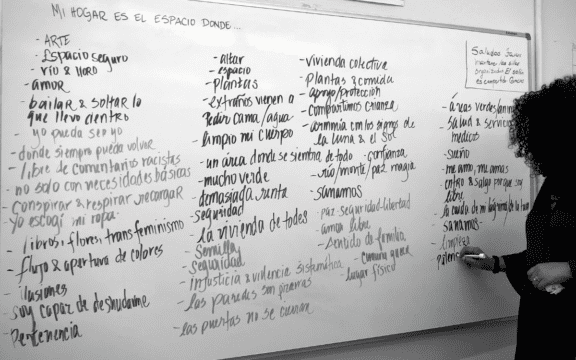 MI HOGAR ES EL ESPACIO DONDE...
- ARTE
- Espacio seguro
- río & lloro
- amor
- bailar & soltar lo
que llevo dentro
- yo pueda ser yo
- donde siempre pueda volver
- libre de comentarios racistas
- no solo con necesidades básicas
- conspirar & respirar, recargar
- yo escogí mi ropa
- libros, flores, transfeminismo
- flujo & apertura de colores
- ilusiones
- soy capaz de desnudarme
- Pertenencia
- altar
- espacio
- plantas
- extraños vienen a
pedir cama/agua
- limpio mi cuerpo
- un área donde se sientan de todo
- mucho verde
- demasiada renta
- seguridad
- la vivienda de todes
- Semilla
- seguridad
- injusticia & violencia sistemática
- las paredes son pizarras
- las puertas no se cierran
- vivienda colectiva
- plantas & comida
- apoyo/protección
- compartimos crianza
- armonía con los signos de
la luna & el sol
- confianza
- río/monte/paz magia
- sanamos
- paz-seguridad-libertad
- amar libre
- sentido de familia
- lugar físico
- áreas verdes
- salud & servicios
médicos
- sueño
- me amo, me amas
- entro & salgo por que soy
libre
- sanamos
- limpieza